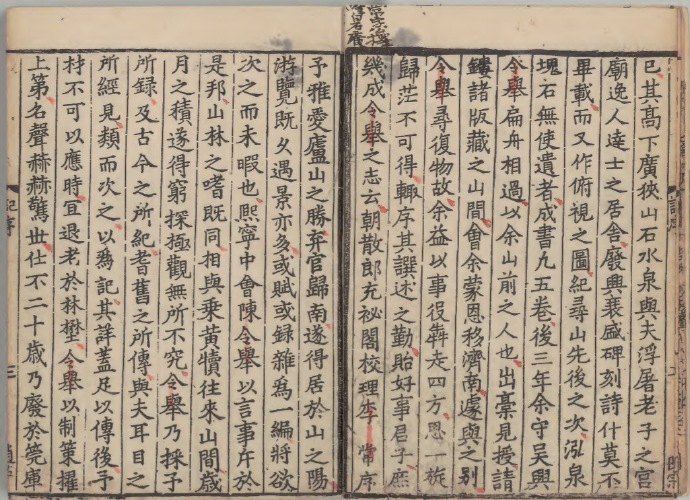 已其高下廣狹山石水泉與夫浮屠老子之宮
廟逸人達士之居舍廢興衰盛碑刻詩什莫不
畢載而又作俯視之圖紀尋山先後之次泓泉
塊石無使遺者成書凡五卷後三年余守吳興
令舉扁舟相過以余山前之人也出藁見授請
鏤諸版藏之山間會余蒙恩移濟南遽與之別
令舉尋復物故余益以事役犇走四方思一旋
歸茫不可得輙序其譔述之勤貽好事君子庶
幾成令舉之志云朝散郎充祕閣校理李常序
予雅愛廬山之勝弃官歸南遂得居於山之陽
游覽既久遇景亦多或賦或録雜爲一編將欲
次之而未暇也熙寧中會陳令舉以言事斥於
是邦山林之嗜既同相與乘黃犢往來山間歲
月之積遂得窮探極觀無所不究令舉乃採予
所録及古今之所紀耆舊之所傳與夫耳目之
所經見類而次之以爲記其詳蓋足以傳後予
材不可以應時宜退老於林壑令舉以制策擢
上第名聲赫赫驚世仕不二十歲乃廢於筦庫